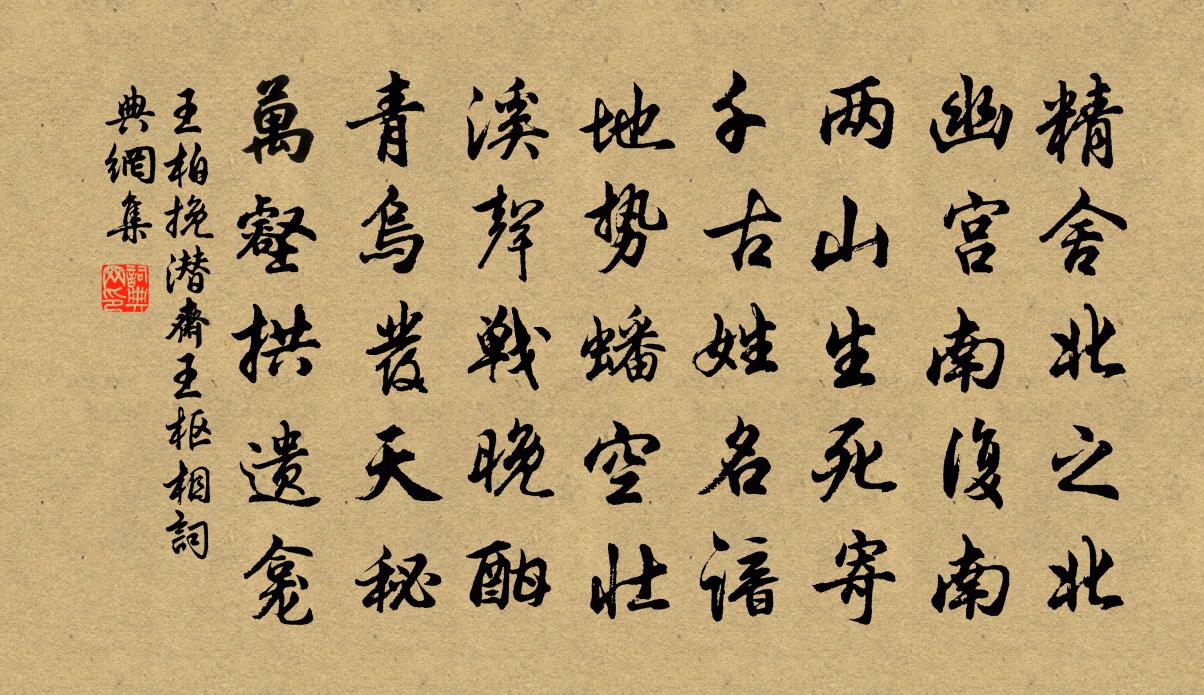 精舍北之北
幽宫南復南
两山生死寄
千古姓名谙
地势蟠空壮
溪聲戰晚酣
青烏發天秘
萬壑拱遗龛
王柏挽潜齋王枢相詞
典網集
詞典
网印